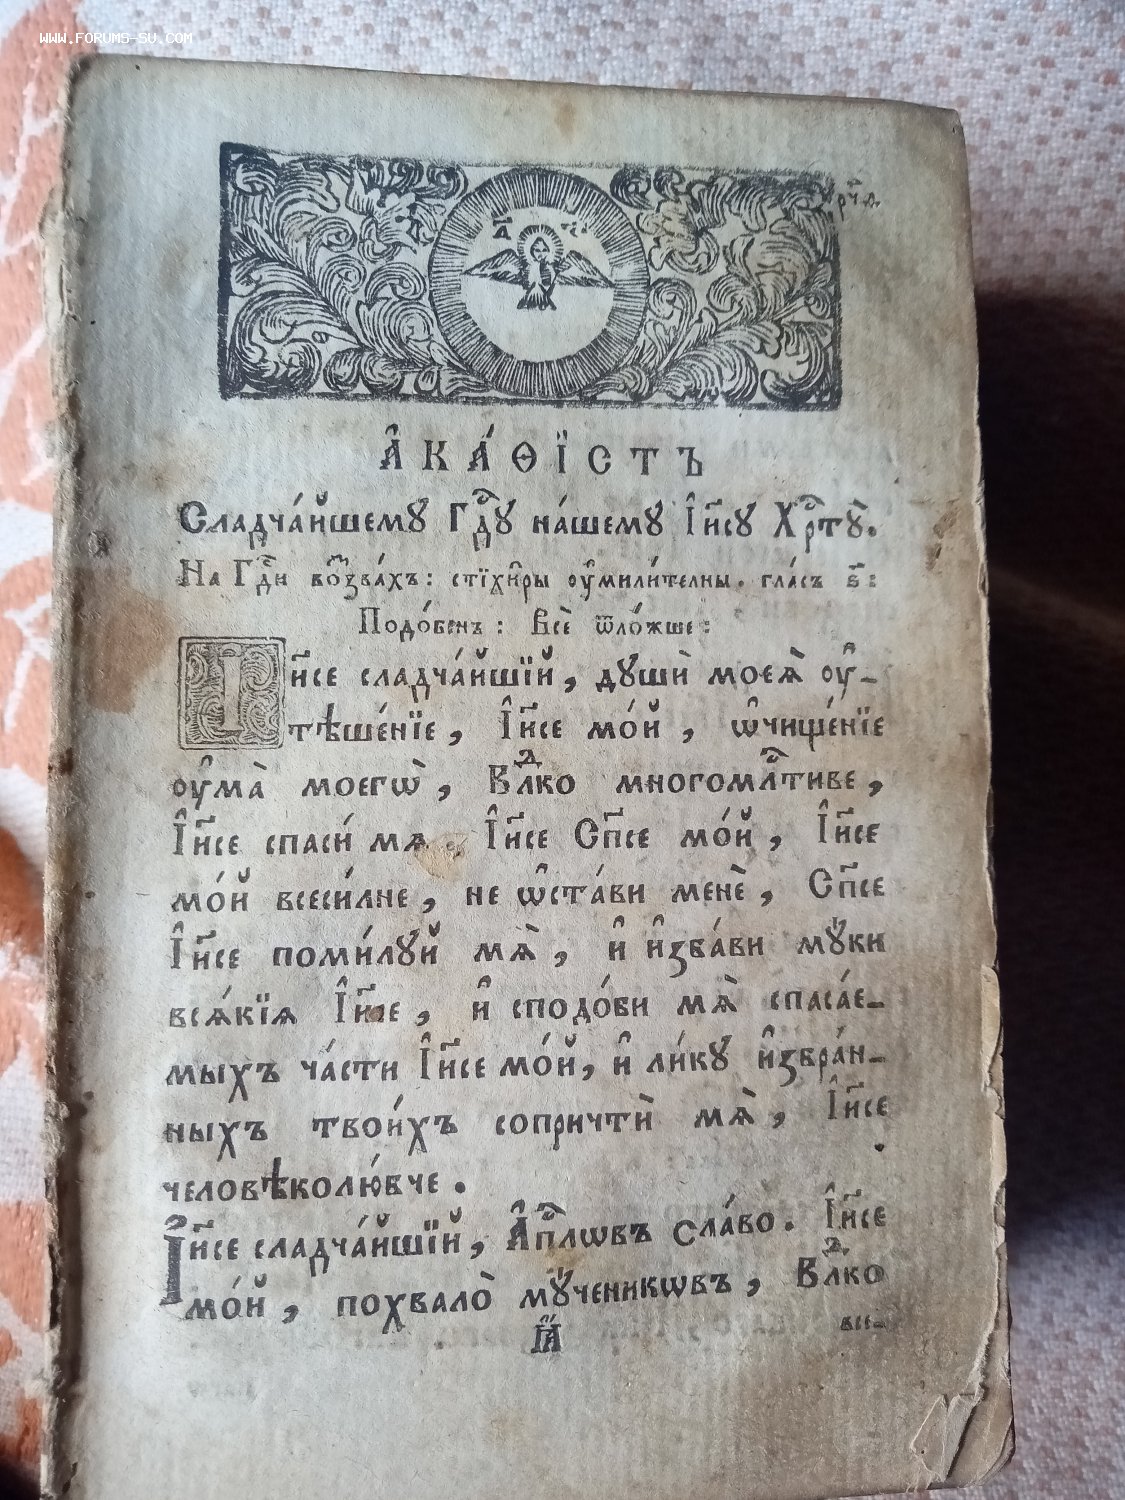 WWW.FORUMS-SU.COM
А҆КА́ѲЇСТЪ
Сладча́йшемꙋ Гдⷭ҇ꙋ на́шемꙋ І҆и҃сꙋ Хрⷭ҇тꙋ̀.
На Гдⷭ҇и воⷥзва́хъ: стїхи̑ры оу҆мили́телны. гла́съ в҃:
Подо́бенъ: Всѐ ѿло́жше:
І҆и҃се сладча́йшїй, дꙋшѝ моеѧ̀ оу҆-
тѣше́нїе, І҆и҃се мо́й, ѡ҆чище́нїе
оу҆ма̀ моегѡ̀, Влⷣко многомлⷭ҇тиве,
І҆и҃се спаси́ мѧ. І҆и҃се Сп҃се мо́й, І҆и҃се
мо́й всеси́лне, не ѡ҆ста́ви менѐ, Сп҃се
І҆и҃се поми́лꙋй мѧ̀, и҆ и҆зба́ви мꙋ́ки
всѧ́кїѧ І҆и҃се, и҆ сподо́би мѧ̀ спаса́е-
мыхъ ча́сти І҆и҃се мо́й, и҆ ли́кꙋ и҆збра́н-
ныхъ твои́хъ сопричтѝ мѧ̀, І҆и҃се
человѣколю́бче.
І҆и҃се сладча́йшїй, А҆пⷭ҇лѡвъ сла́во. І҆и҃се
мо́й, похвало̀ мꙋ́ченикѡвъ, Влⷣко
н҃и
все-